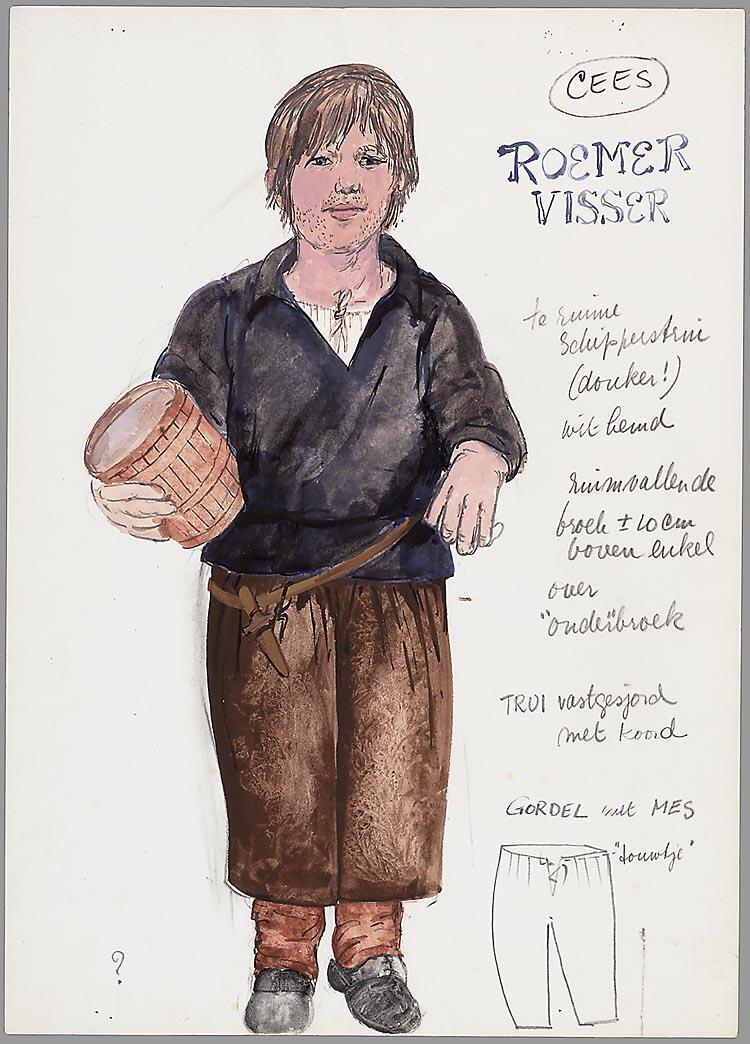 CEES
ROEMER
VISSER
te ruime
Schipperstrui
(donker!)
wit hemd
ruimvallende
broek ± 10 cm
boven enkel
over
"onder"broek
TRUI vastgesjord
met koord
GORDEL met MES
"touwtje"
?